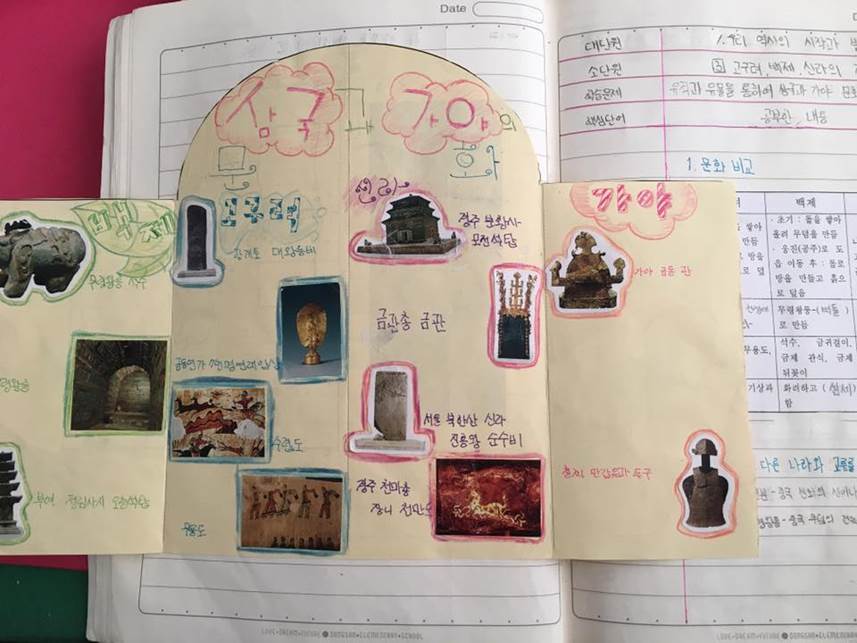 Date
삼국과 가야의
문화
백제
무령왕릉 석수
무령왕릉
부여 정림사지 오층석탑
고구려
광개토 대왕릉비
금동연가 7년명 여래 입상
수렵도
무용도
신라
경주 분황사
모전석탑
금관총 금관
서울 북한산 신라
진흥왕 순수비
경주 천마총
장니 천마도
가야
가야 금동관
철제 판갑옷과 투구
대단원
1. 우리 역사의 시작과
소단원
3 고구려, 백제, 신라의
학습문제
유적과 유물을 통하여 삼국과 가야 문화
핵심단어
공부한 내용
1. 문화 비교
백제
· 초기 : 돌을 쌓아
올려 무덤을 만듦
· 웅진(공주)로 도
읍 이동 후 : 돌로
방을 만들고 흙으
로 덮음
무령왕릉-(벽돌)
로 만듦
무용도,
석수, 금귀걸이,
금제 관식, 금제
뒤꽂이
기상과
화려하고 (섬세)
함
다른 나라와 교류를
LOVE•DREAM•FUTURE DONGSAN ELEMENTARY SCHOOL